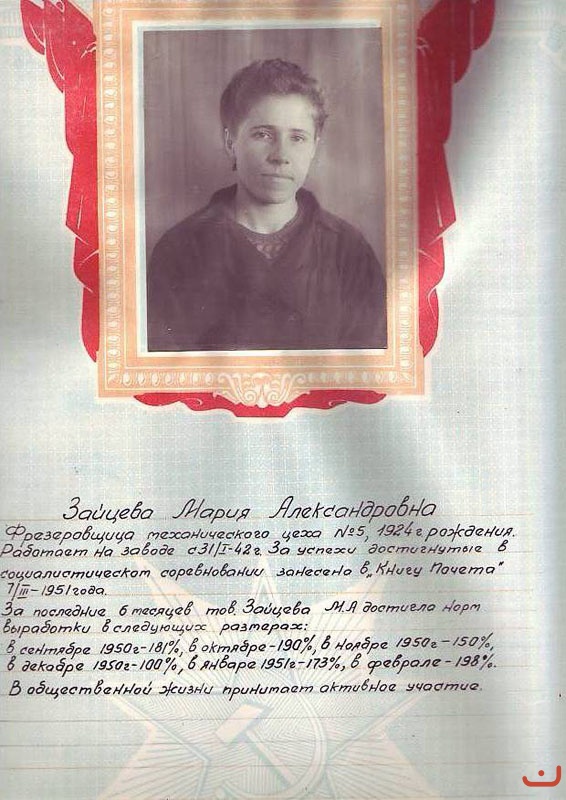 Зайцева Мария Александровна
Фрезеровщица механического цеха №5, 1924 г. рождения.
Работает на заводе с 31/I-42 г. За успехи достигнутые в
социалистическом соревновании занесена в „Книгу Почета"
7/III-1951 года.
За последние 6 месяцев тов. Зайцева М.А достигла норм
выработки в следующих размерах:
в сентябре 1950г-181%, в октябре-190%, в ноябре 1950г-150%,
в декабре 1950г-100%, в январе 1951г-173%, в феврале-198%.
В общественной жизни принимает активное участие.